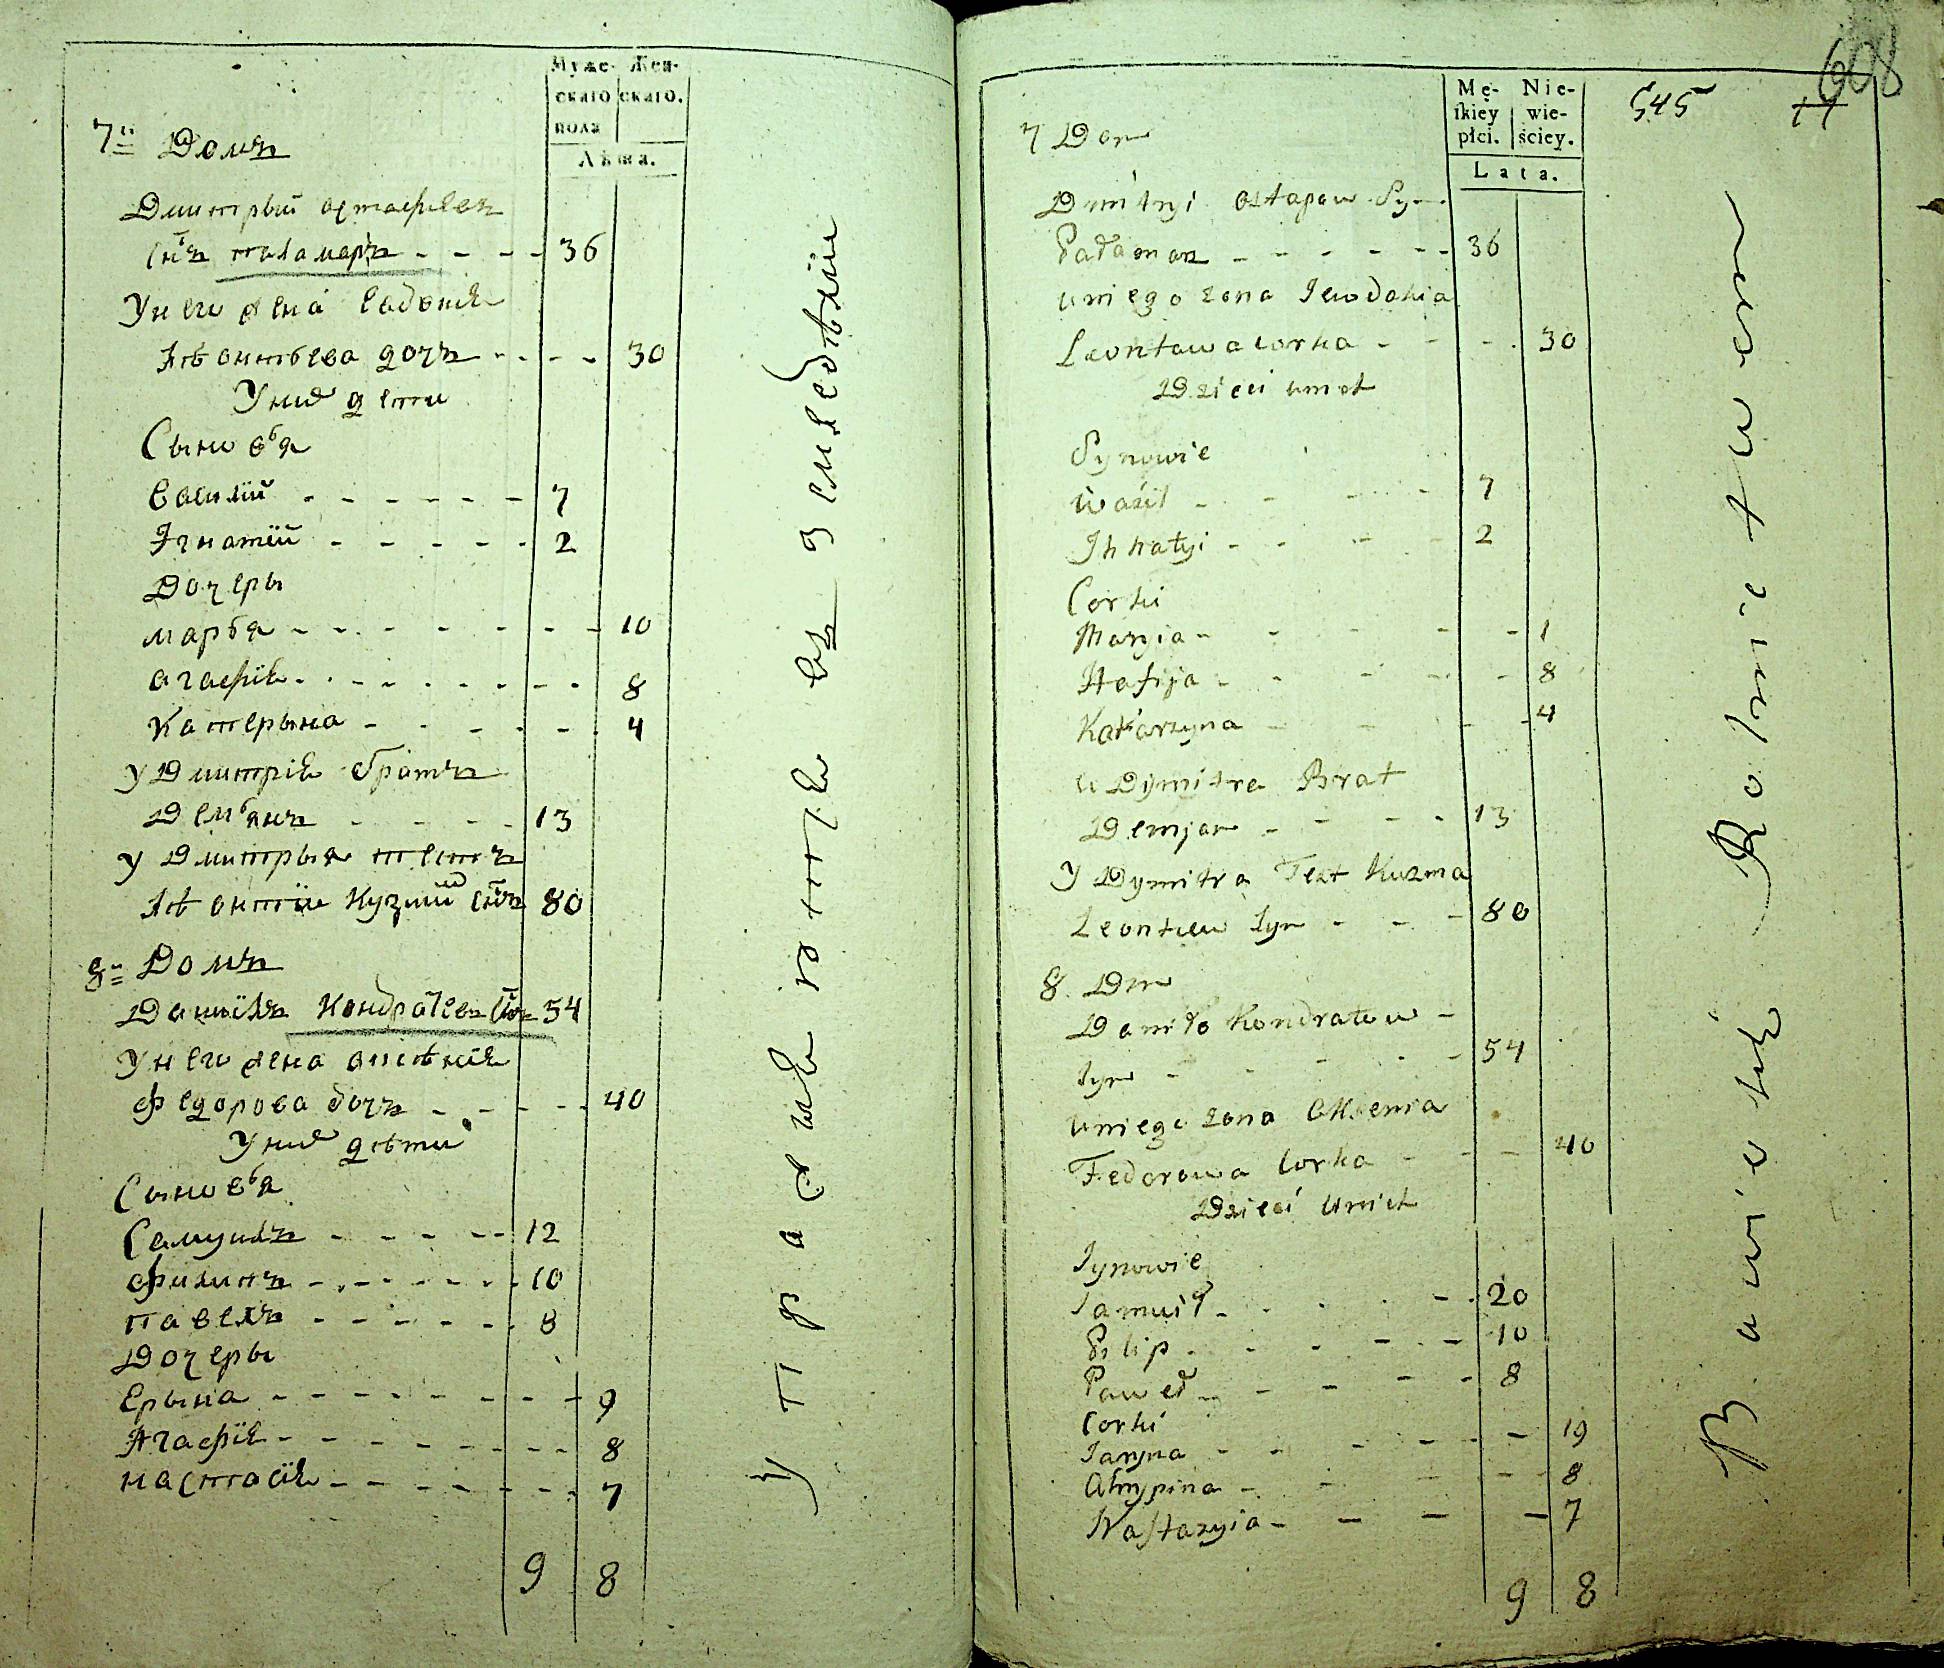 Муже- Жен-
скаго скаго.
пола
Лѣта.
7й Домъ
Дмитрый остафіевъ
Сн҃ъ паламаръ - - - - 36
У него жена Евдокія
Лѣонтьева дочъ - - - - 30
У них дети
Сыновья
Василій - - - - - - 7
Ігнатій - - - - - 2
Дочеры
марья - - - - - - - - 10
агафія - - - - - - - - 8
Катерына - - - - - - 4
у Дмитрія братъ
Демьянъ - - - - 13
у Дмитрыя тесть
Лѣонтіи Кузмин Сн҃ъ 80
8й Домъ
Даниілъ Кондратіевъ Сн҃ъ 54
У него жена аксѣнія
Федорова дочъ - - - - 40
У них дѣти
Сыновья
Самуилъ - - - - - 12
Филипъ - - - - - - 10
павелъ - - - - - - 8
Дочеры
Ерына - - - - - - - - 9
Агафія - - - - - - - - 8
настасія - - - - - - - 7
9 8
у праснія юття въ земледѣліи
608
Mę- Nie-
skiey wie-
płci. ściey.
Lata.
545 17
7 Dom
Dmitryi Ostapow Syn
Pałamarz - - - - - - 36
u niego żona Jewdokia
Leontowa corka - - - 30
Dzieci u nich
Synowie
Wasil - - - - 7
Ihnatyi - - - - 2
Corki
Maryia - - - - - 1
Hafija - - - - - 8
Katarzyna - - - - 4
u Dymitra Brat
Demjan - - - - 13
U Dymitra Test Kuzma
Leontiew Syn - - - 80
8. Dm
Daniło Kondratow -
Syn - - - - 54
u niego żona Oksenia
Fedorowa Corka - - - 40
Dzieci u nich
Synowie
Samuił - - - - - 20
Filip - - - - 10
Paweł - - - - - 8
Corki
Jaryna - - - - - 19
Ahrypina - - - - 8
Nastazyia - - - - 7
9 8
Bawie się Rolnictwem